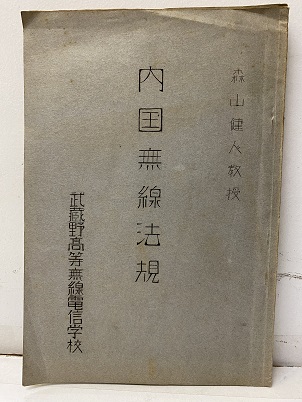 森山健人教授
内国無線法規
武蔵野高等無線電信学校